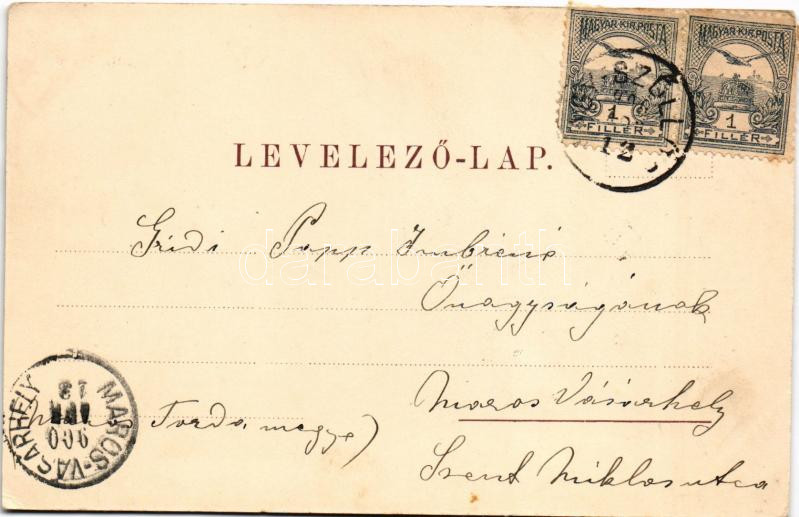 MAGYAR KIR. POSTA
MAGYAR KIR. POSTA
1
FILLÉR
1
FILLÉR
12
LEVELEZŐ-LAP.
Papp Imbréné
Őnagyságának
Maros Vásárhely
Torda megye)
Szent Miklos utca
MAROS-VÁSÁRHELY
900
13
darabanth